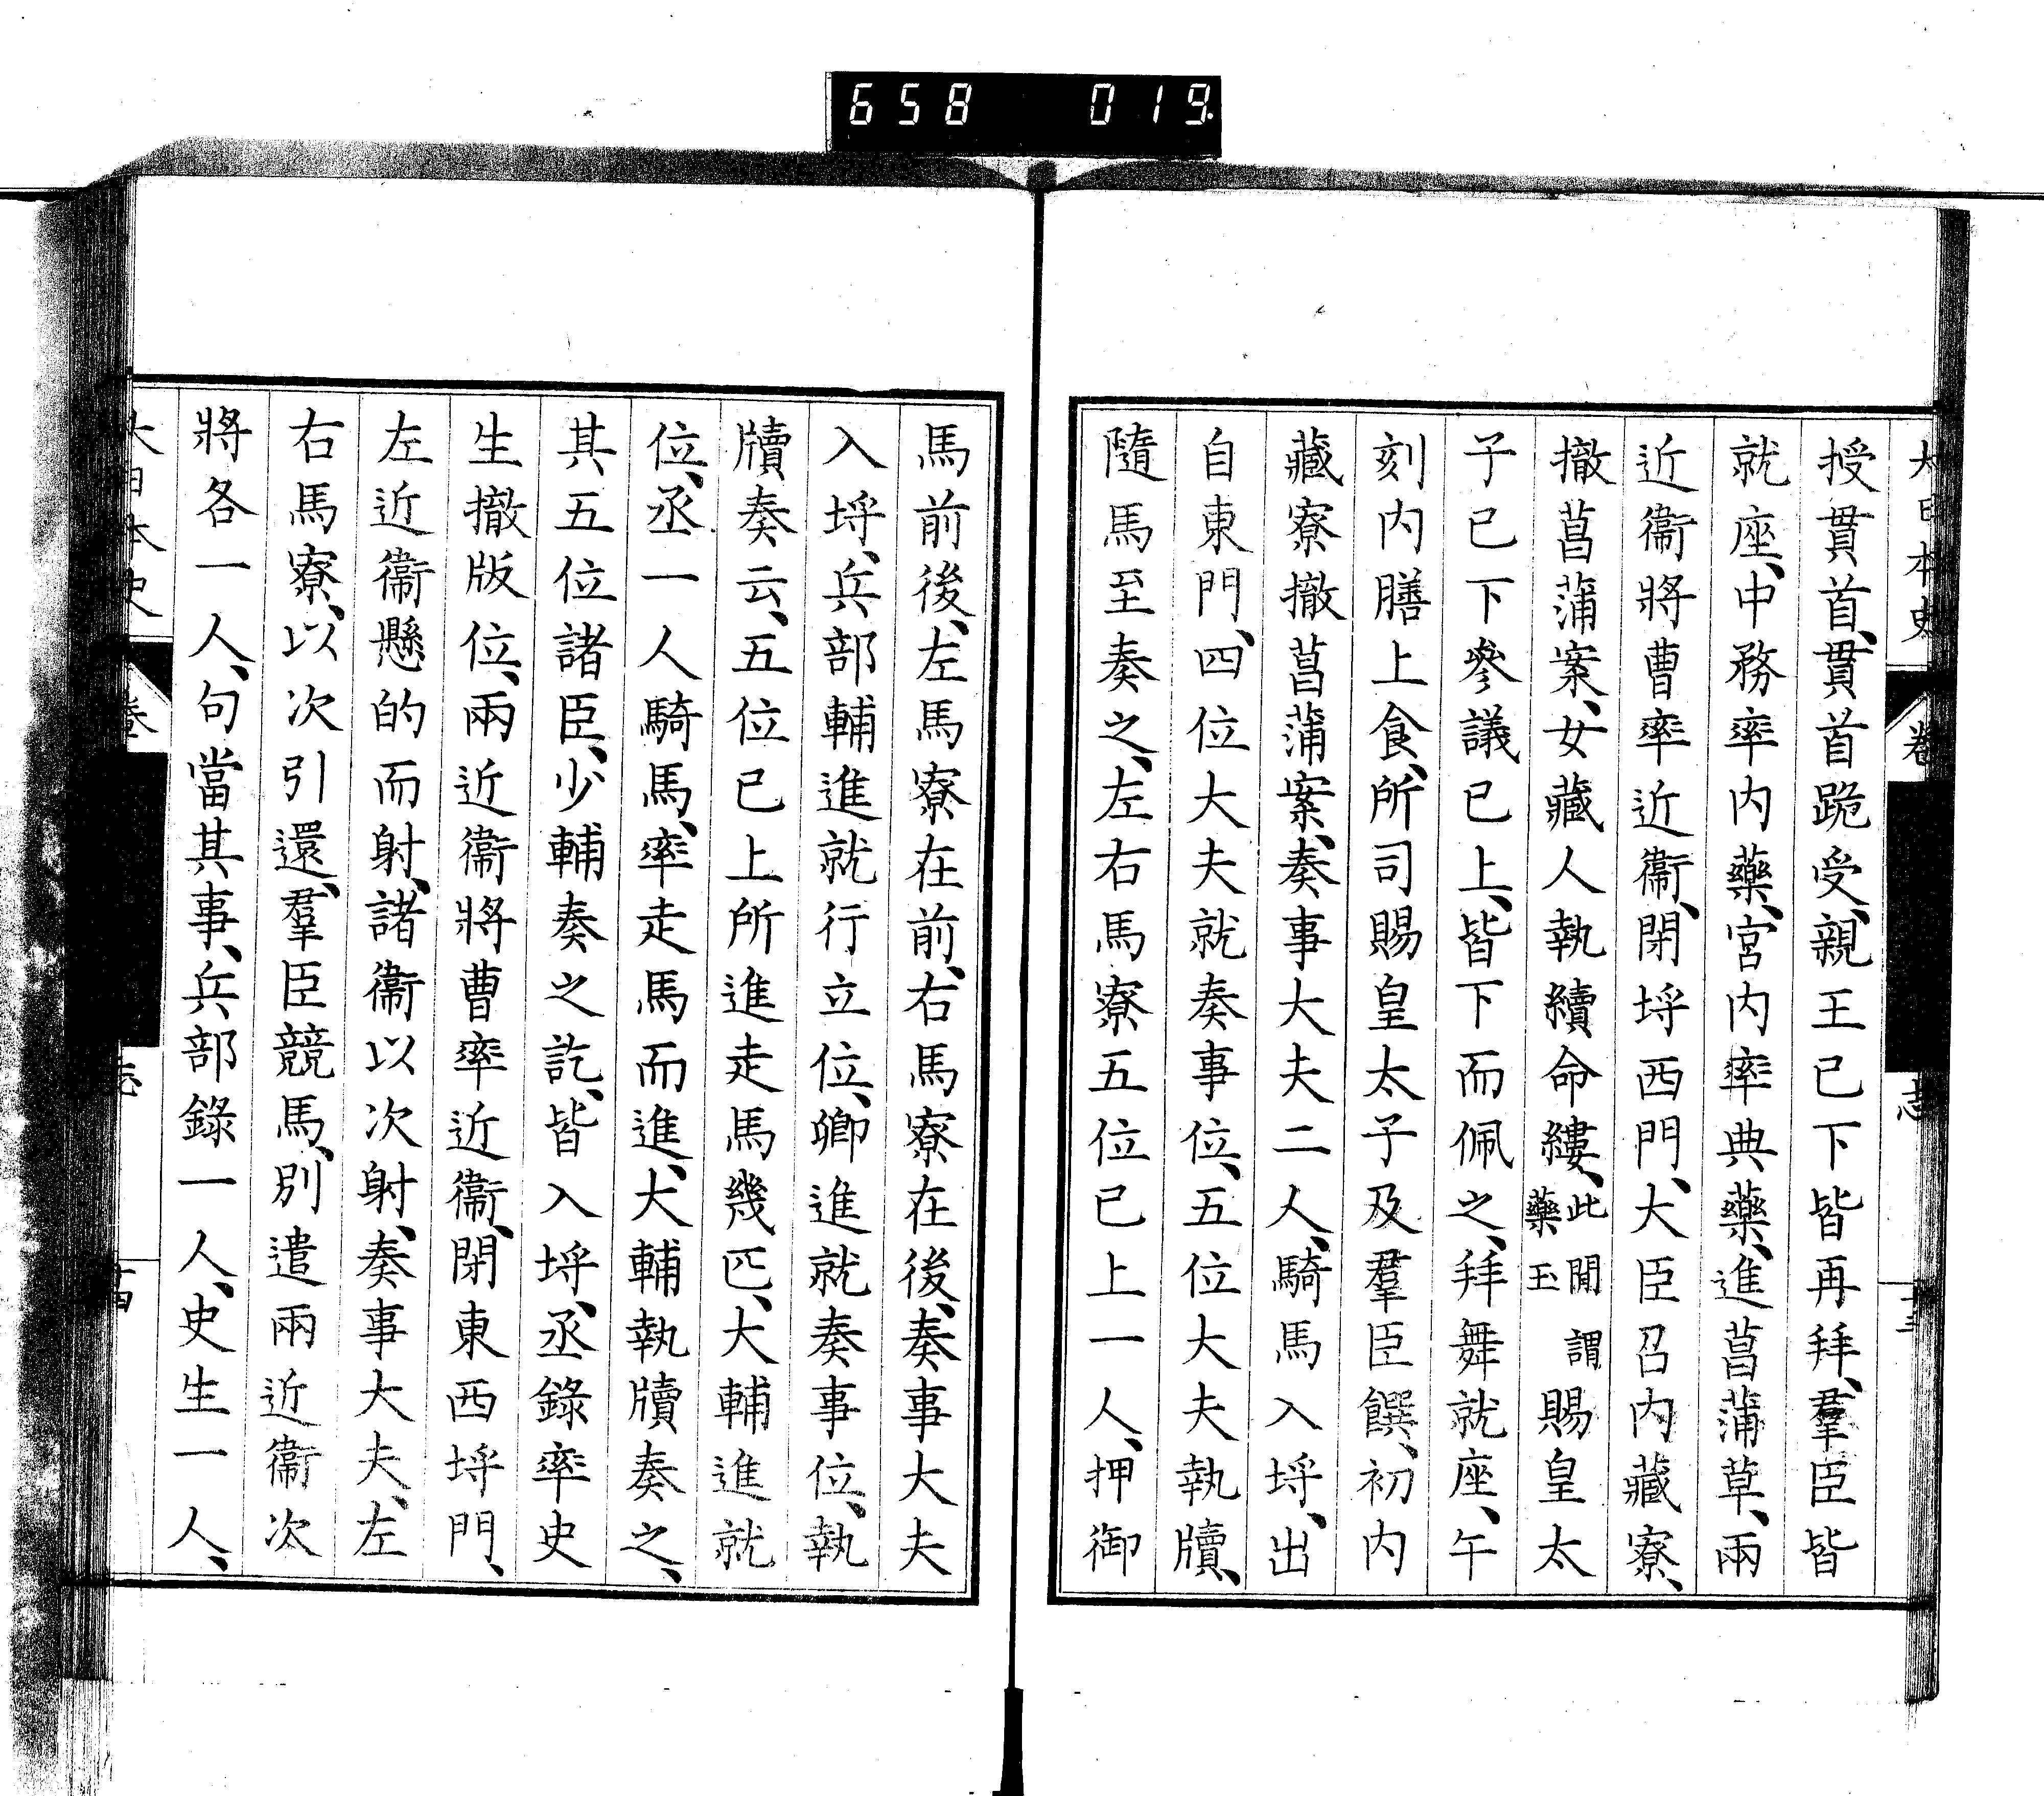 658 019.
大日本史 卷 志 十三
授貫首、貫首跪受、親王已下皆再拜、羣臣皆
就座、中務率内藥、宮内率典藥、進菖蒲草、兩
近衞將曹率近衞、閉埒西門、大臣召内藏寮、
撤菖蒲案、女藏人執續命縷、此閒謂藥玉賜皇太
子已下參議已上、皆下而佩之、拜舞就座、午
刻内膳上食、所司賜皇太子及羣臣饌、初内
藏寮撤菖蒲案、奏事大夫二人、騎馬入埒、出
自東門、四位大夫就奏事位、五位大夫執牘、
隨馬至奏之、左右馬寮五位已上一人、押御
馬前後、左馬寮在前、右馬寮在後、奏事大夫
入埒、兵部輔進就行立位、卿進就奏事位、執
牘奏云、五位已上所進走馬幾匹、大輔進就
位、丞一人騎馬、率走馬而進、大輔執牘奏之、
其五位諸臣、少輔奏之訖、皆入埒、丞錄率史
生撤版位、兩近衞將曹率近衞、閉東西埒門、
左近衞懸的而射、諸衞以次射、奏事大夫、左
右馬寮、以次引還、羣臣競馬、別遣兩近衞次
將各一人、句當其事、兵部錄一人、史生一人、
大日本史 卷 志 十四